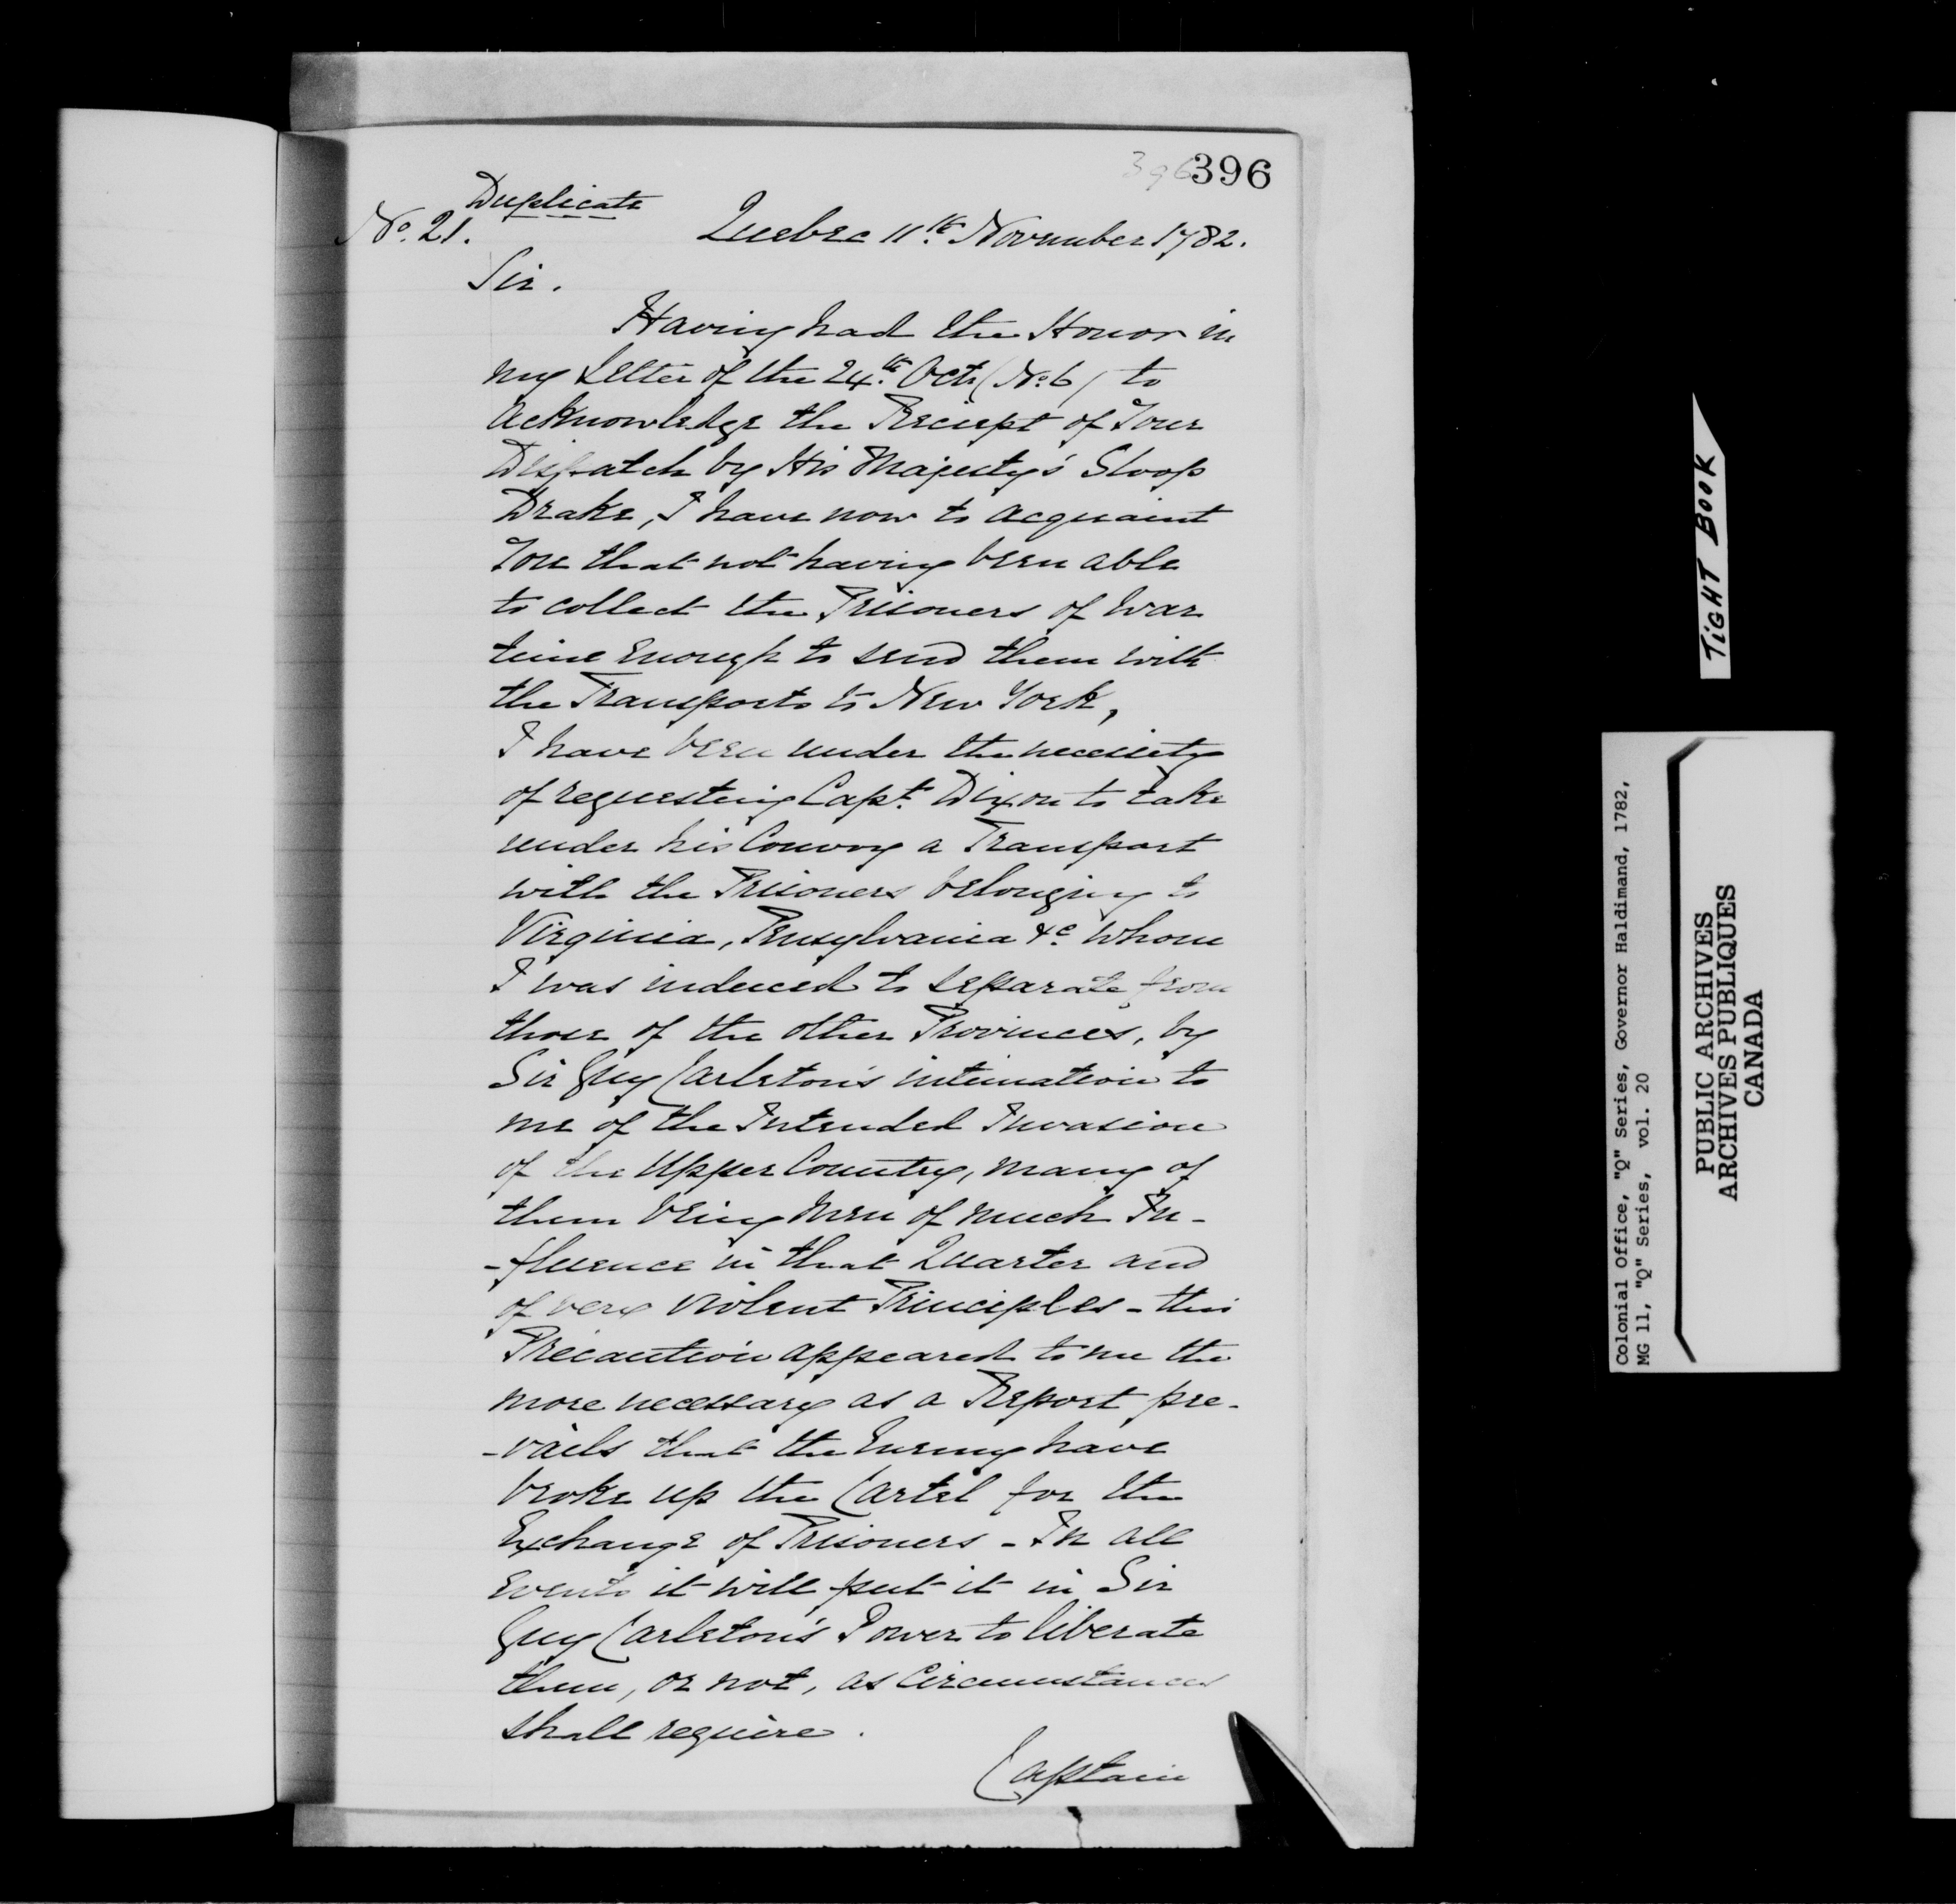 396 396
Duplicate
No. 21.
Quebec 11th November 1782.
Sir.
Having had the Honor in
my Letter of the 24th Octr (No. 6) to
acknowledge the Receipt of Your
Dispatch by His Majesty's Sloop
Drake, I have now to acquaint
You that not having been able
to collect the Prisoners of War
time enough to send them with
the Transports to New York,
I have been under the necessity
of requesting Capt. Dixon to take
under his Convoy a Transport
with the Prisoners belonging to
Virginia, Pensylvania &c. whom
I was induced to separate from
those of the other Provinces, by
Sir Guy Carleton's intimation to
me of the Intended Invasion
of the Upper Country, many of
them being Men of much In-
-fluence in that Quarter and
of very violent Principles - this
Precaution appeared to me the
more necessary as a Report pre-
-vails that the Enemy have
broke up the Cartel for the
Exchange of Prisoners - In all
Events it will put it in Sir
Guy Carleton's Power to liberate
them, or not, as Circumstances
shall require.
Captain
TIGHT BOOK
Colonial Office, "Q" Series, Governor Haldimand, 1782,
MG 11, "Q" Series, vol. 20
PUBLIC ARCHIVES
ARCHIVES PUBLIQUES
CANADA